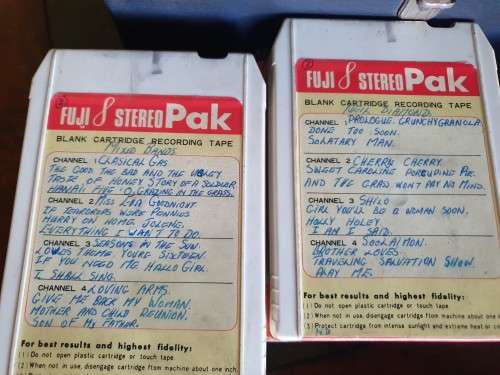 FUJI 8 STEREO Pak
BLANK CARTRIDGE RECORDING TAPE
MIXED BANDS
CHANNEL 1 CLASICAL GAS
THE GOOD THE BAD AND THE UGLEY
TASTE OF HONEY STORY OF A SOLDIER
HAWAII FIVE O, GRAZING IN THE GRASS.
CHANNEL 2 MISS LKA GOODNIGHT
IF TEARDROPS WERE PENNIES
HURRY ON HOME JOLENE,
EVERYTHING I WANT TO DO.
CHANNEL 3 SEASONS IN THE SUN.
LOVES THEME, YOURE SIXTEEN.
IF YOU NEED ME HALLO GIRL.
I SHALL SING.
CHANNEL 4 LOVING ARMS.
GIVE ME BACK MY WOMAN.
MOTHER AND CHILD REUNION.
SON OF MY FATHER.
For best results and highest fidelity:
(1) Do not open plastic cartridge or touch tape
(2) When not in use, disengage cartridge from machine about one inch.
FUJI 8 STEREO Pak
BLANK CARTRIDGE RECORDING TAPE
NEIL DIAMOND.
CHANNEL 1 PROLOGUE. CRUNCHYGRANOLA
DONE TOO SOON.
SOLATARY MAN.
CHANNEL 2 CHERRY CHERRY.
SWEET CAROLINE PORCUPINE PIE.
AND THE GRASS WONT PAY NO MIND.
CHANNEL 3 SHILO
GIRL YOU'LL BE A WOMAN SOON.
HOLLY HOLEY
I AM I SAID.
CHANNEL 4 SOOLAIMON.
BROTHER LOVES
TRAVELING SALVATION SHOW.
PLAY ME.
For best results and highest fidelity:
(1) Do not open plastic cartridge or touch tape
(2) When not in use, disengage cartridge from machine about
(3) Protect cartridge from intense sunlight and extreme heat or
N.D